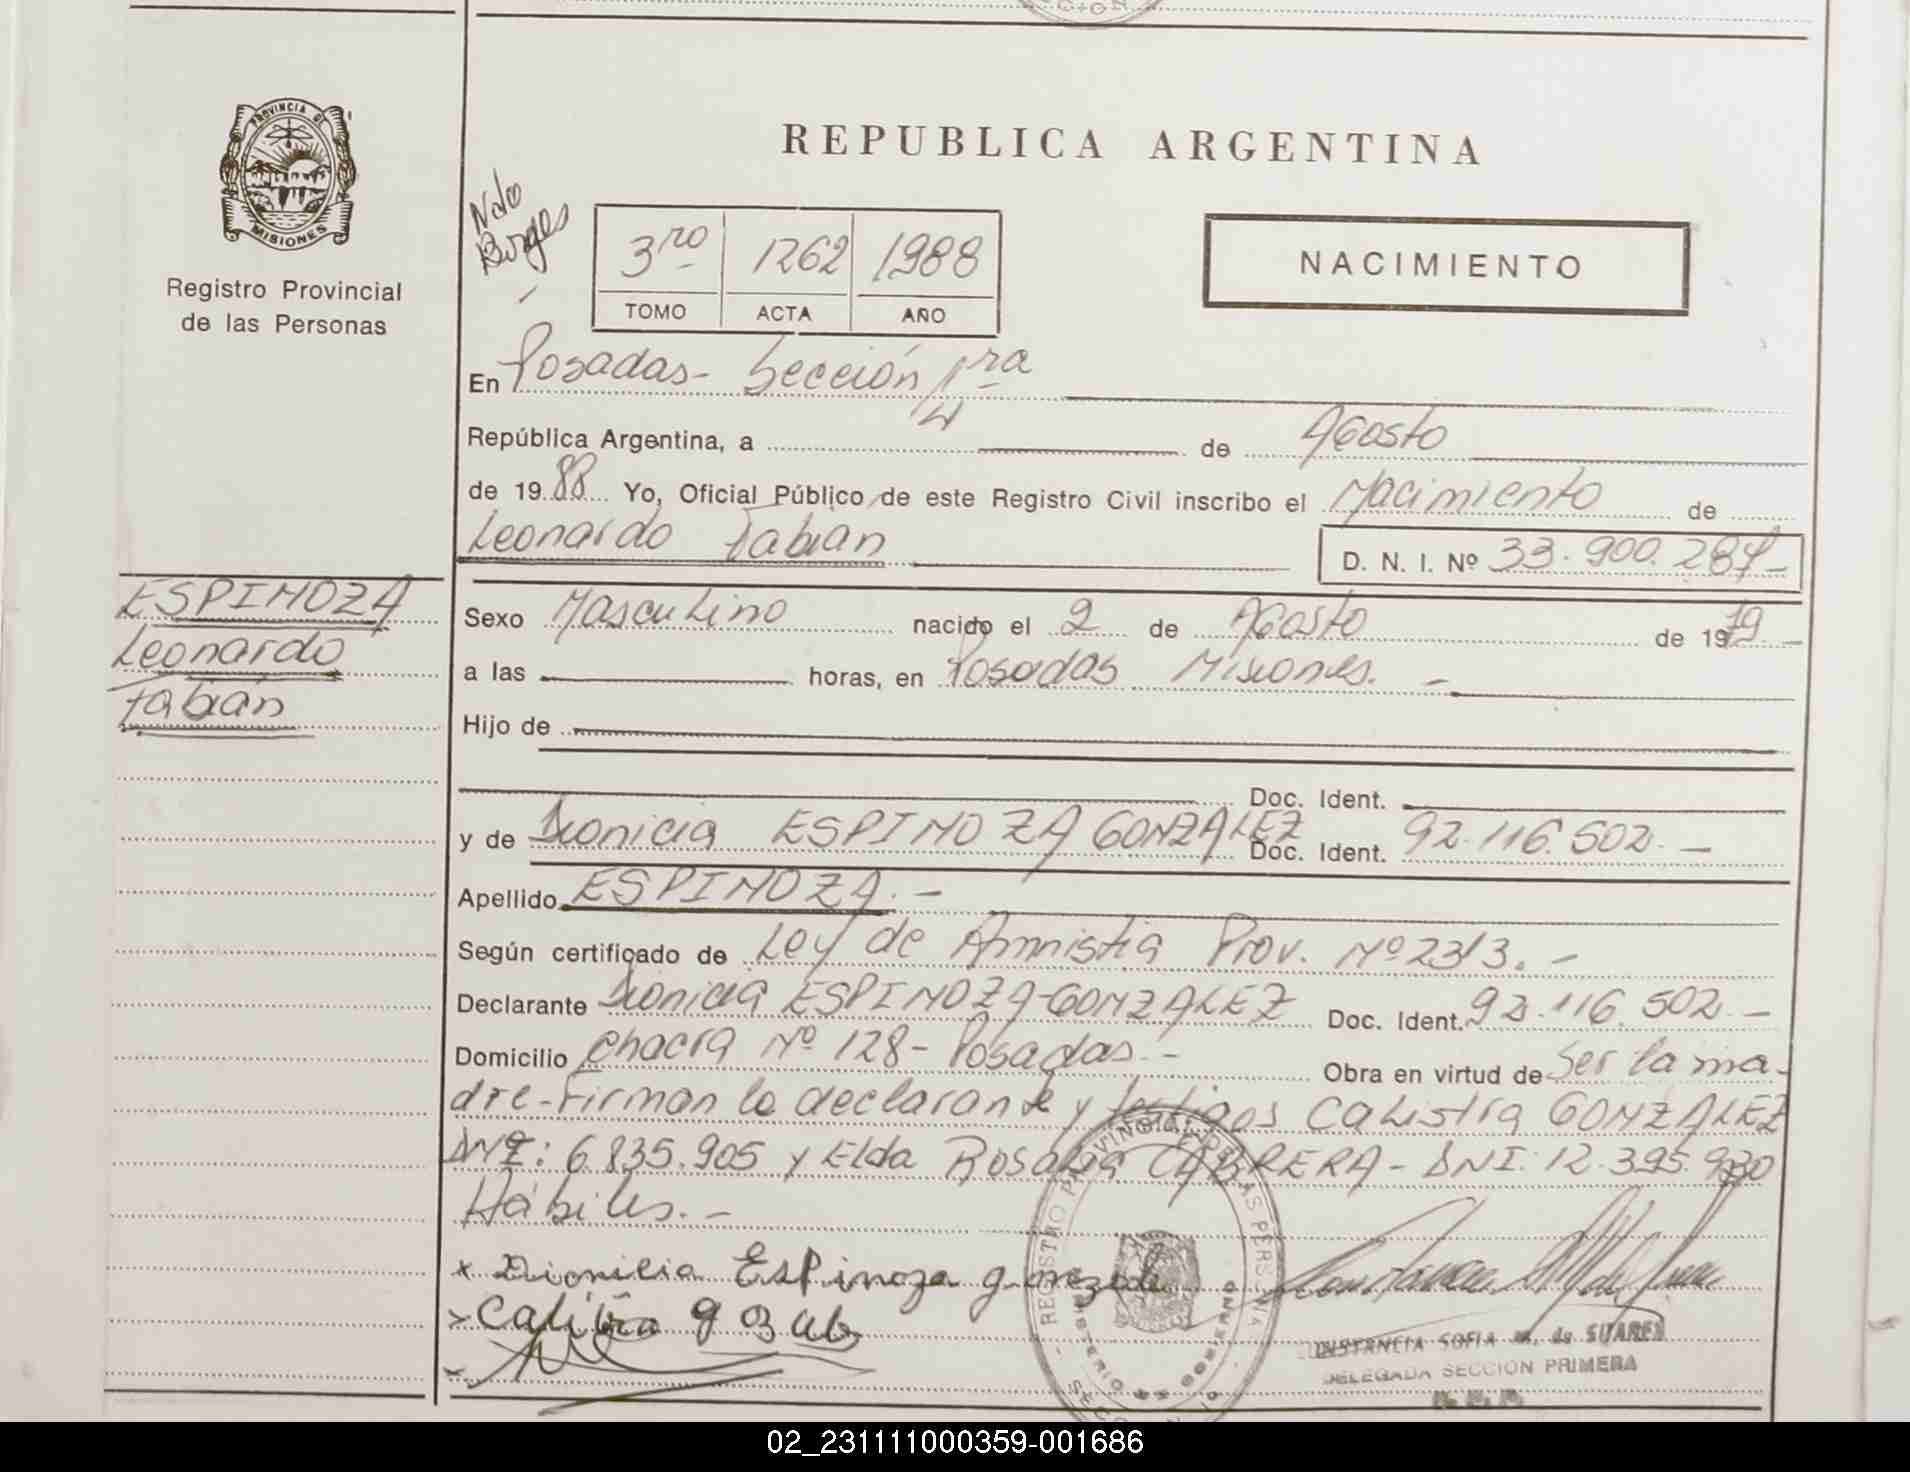 CION
PROVINCIA DE
MISIONES
Registro Provincial
de las Personas
REPUBLICA ARGENTINA
Borges
3ro 1262 1988
TOMO ACTA AÑO
NACIMIENTO
En Posadas - Sección 1ra
República Argentina, a 4 de Agosto
de 1988 Yo, Oficial Público de este Registro Civil inscribo el Nacimiento de
Leonardo Fabian
D. N. I. Nº 33.900.287-
ESPINOZA
Leonardo
Fabián
Sexo Masculino nacido el 2 de Agosto de 1979 -
a las horas, en Posadas Misiones. -
Hijo de
Doc. Ident.
y de Dionicia ESPINOZA GONZALEZ Doc. Ident. 92.116.502. -
Apellido ESPINOZA. -
Según certificado de Ley de Amnistia Prov. Nº 2313. -
Declarante Dionicia ESPINOZA-GONZALEZ Doc. Ident. 92.116.502 -
Domicilio Chacra Nº 128 - Posadas. - Obra en virtud de Ser la ma-
dre - Firman la declarante y testigos Calistra GONZALEZ
DNI: 6.835.905 y Elda Rosalia CABRERA - DNI: 12.395.930
Hábiles. -
x Dionicia Espinoza gonzale
REGISTRO PROVINCIAL DE LAS PERSONAS
MINISTERIO DE GOBIERNO
CONSTANCIA SOFIA M. de SITARES
DELEGADA SECCION PRIMERA
02_231111000359-001686